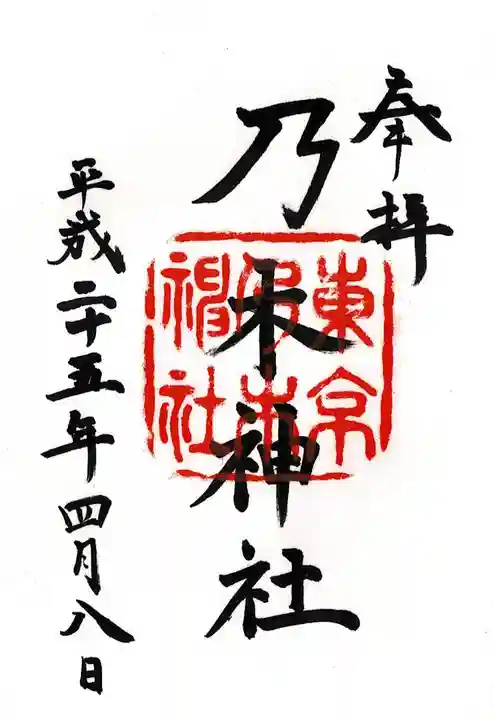 奉拝
乃木神社
東京
乃木
神社
平成二十五年四月八日